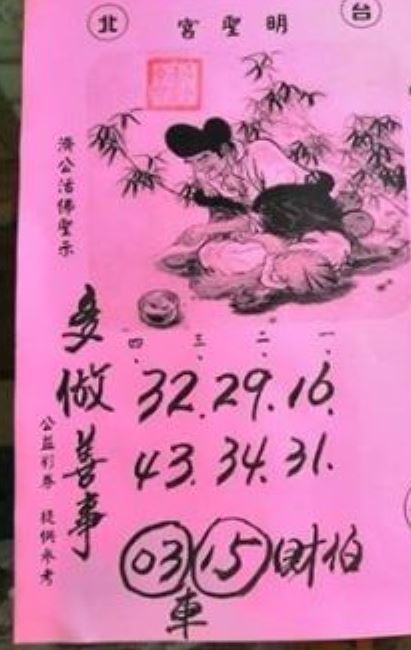 台 北
明聖宮
濟公活佛聖示
一、 二、 三、 四、
多做善事
16. 29. 32.
31. 34. 43.
財伯 15 03
車
公益彩券 提供參考